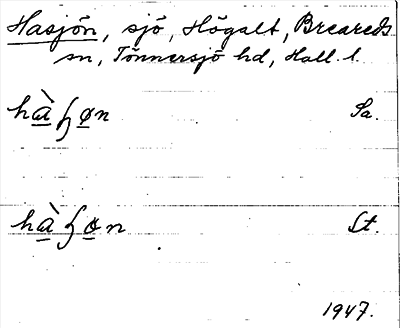 Hasjön, sjö, Högalt, Breareds
sn, Tönnersjö hd, Hall. l.
hàɧøn Sa.
hàɧøn St.
1947.